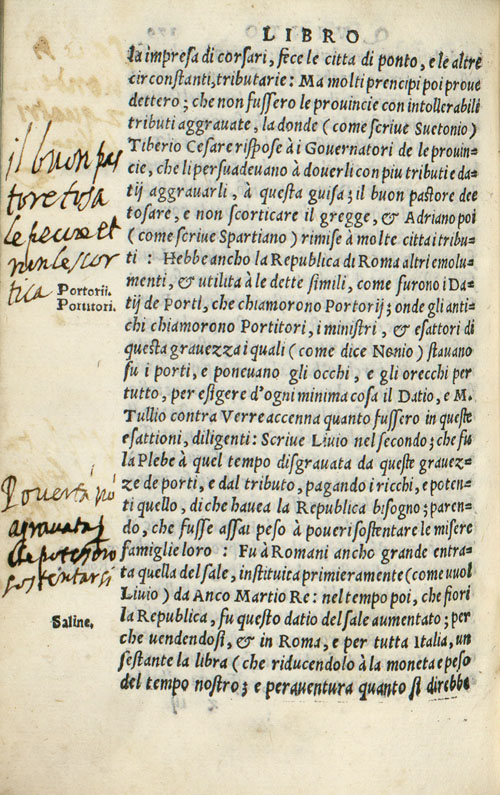 LIBRO
la impresa di corsari, fece le citta di ponto, e le altre
circonstanti, tributarie: Ma molti prencipi poi prove
dettero; che non fussero le provincie con intollerabili
tributi aggravate, la donde (come scrive Suetonio)
Tiberio Cesare rispose à i Governatori de le provin=
cie, che li persuadevano à doverli con piu tributi e da=
tij aggravarli, à questa guisa; il buon pastore dee
tosare, e non scorticare il gregge, & Adriano poi
(come scrive Spartiano) rimise à molte citta i tribu=
ti: Hebbe ancho la Republica di Roma altri emolu=
menti, & utilità à le dette simili, come furono i Da=
tij de Porti, che chiamorono Portorij; onde gli anti=
chi chiamorono Portitori, i ministri, & esattori di
questa gravezza i quali (come dice Nonio) stavano
su i porti, e ponevano gli occhi, e gli orecchi per
tutto, per esigere d'ogni minima cosa il Datio, e M.
Tullio contra Verre accenna quanto fussero in queste
esattioni, diligenti: Scrive Livio nel secondo; che fu
la Plebe à quel tempo disgravata da queste gravez=
ze de porti, e dal tributo, pagando i ricchi, e poten=
ti quello, di che havea la Republica bisogno; paren=
do, che fusse assai peso à poveri sostentare le misere
famiglie loro: Fu à Romani ancho grande entra=
ta quella del sale, instituita primieramente (come vuol
Livio) da Anco Martio Re: nel tempo poi, che fiori
la Republica, fu questo datio del sale aumentato; per
che vendendosi, & in Roma, e per tutta Italia, un
sestante la libra (che riducendolo à la moneta e peso
del tempo nostro; e peraventura quanto si direbbe
il buon pas
tore tosa
le pecore et
non le scor
tica
Portorii.
Portitori.
Povertà nō
agravata
che potessero
sostentarsi
Saline.